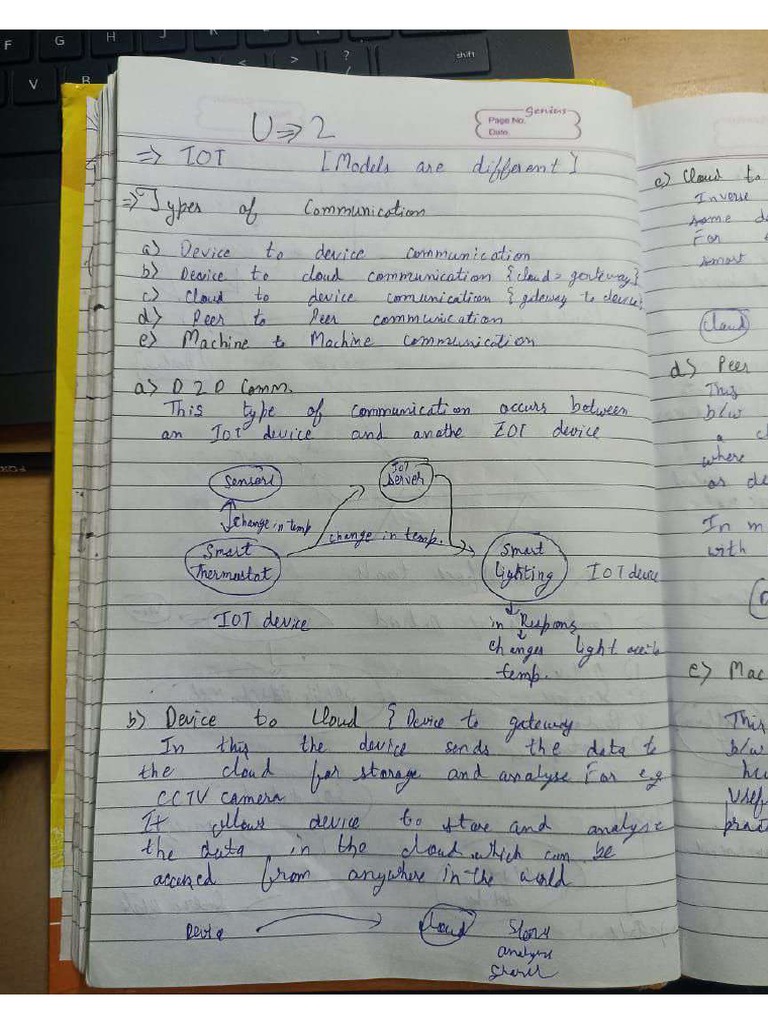 F G H J
V
< > ? /
shift
genius
Page No.
Date.
U ⇒ 2
⇒ IOT [Models are different]
⇒ Types of Communication
a) Device to device communication
b) Device to cloud communication {cloud = gateway}
c) Cloud to device comunication { gateway to device}
d) Peer to Peer communication
e) Machine to Machine communication
a) D 2 D Comm.
This type of communication occurs between
an IOT device and anothe IOT device
Sensors
IoT
Server
change in temp
change in temp.
Smart
Thermostat
Smart
Lighting
IOT device
IOT device
in Respons
changes light
temp.
b) Device to Cloud { Device to gateway
In this the device sends the data to
the cloud for storage and analyse For e.g.
CCTV camera
It allows device to store and analyse
the data in the cloud which can be
accessed from anywhere in the world
Device
cloud
Store
analyse
c) Cloud to
Inverse
some d
For
smart
cloud
d) Peer
This
b/w
a c
where
or de
In m
with
e) Mac
This
b/w
hu
Usef
pract